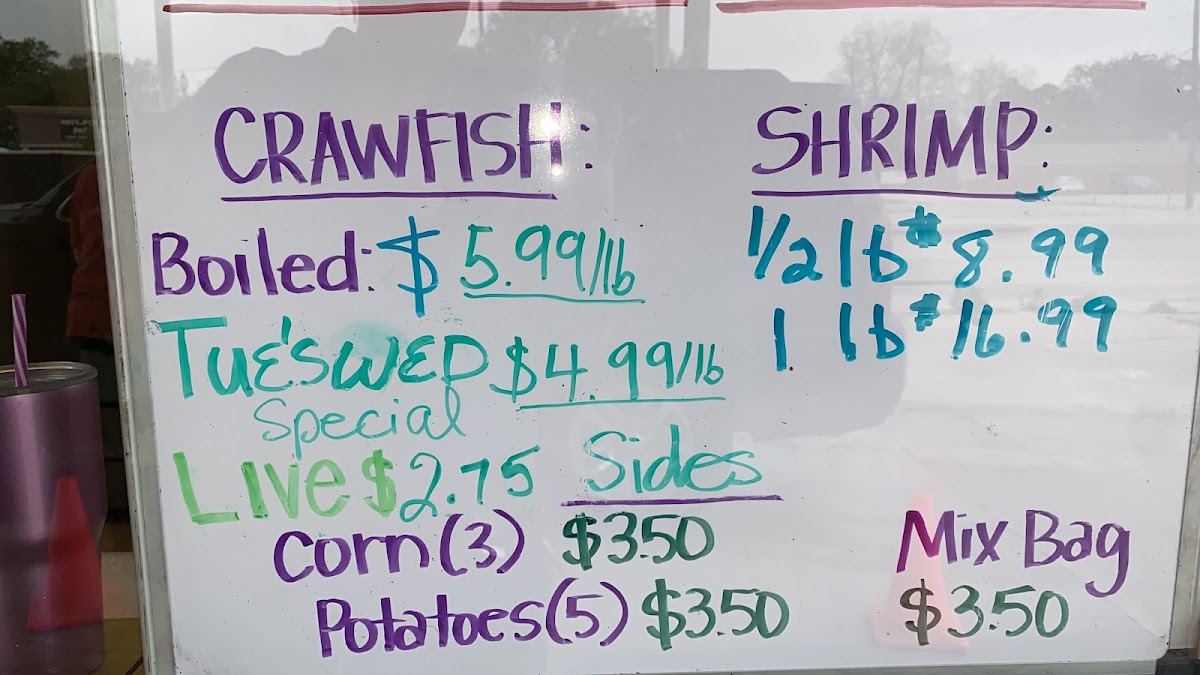 CRAWFISH:
Boiled: $5.99/lb
Tue'sWED $4.99/lb
Special
Live $2.75
SHRIMP:
1/2 lb $8.99
1 lb $16.99
Sides
Corn (3) $3.50
Potatoes (5) $3.50
Mix Bag
$3.50